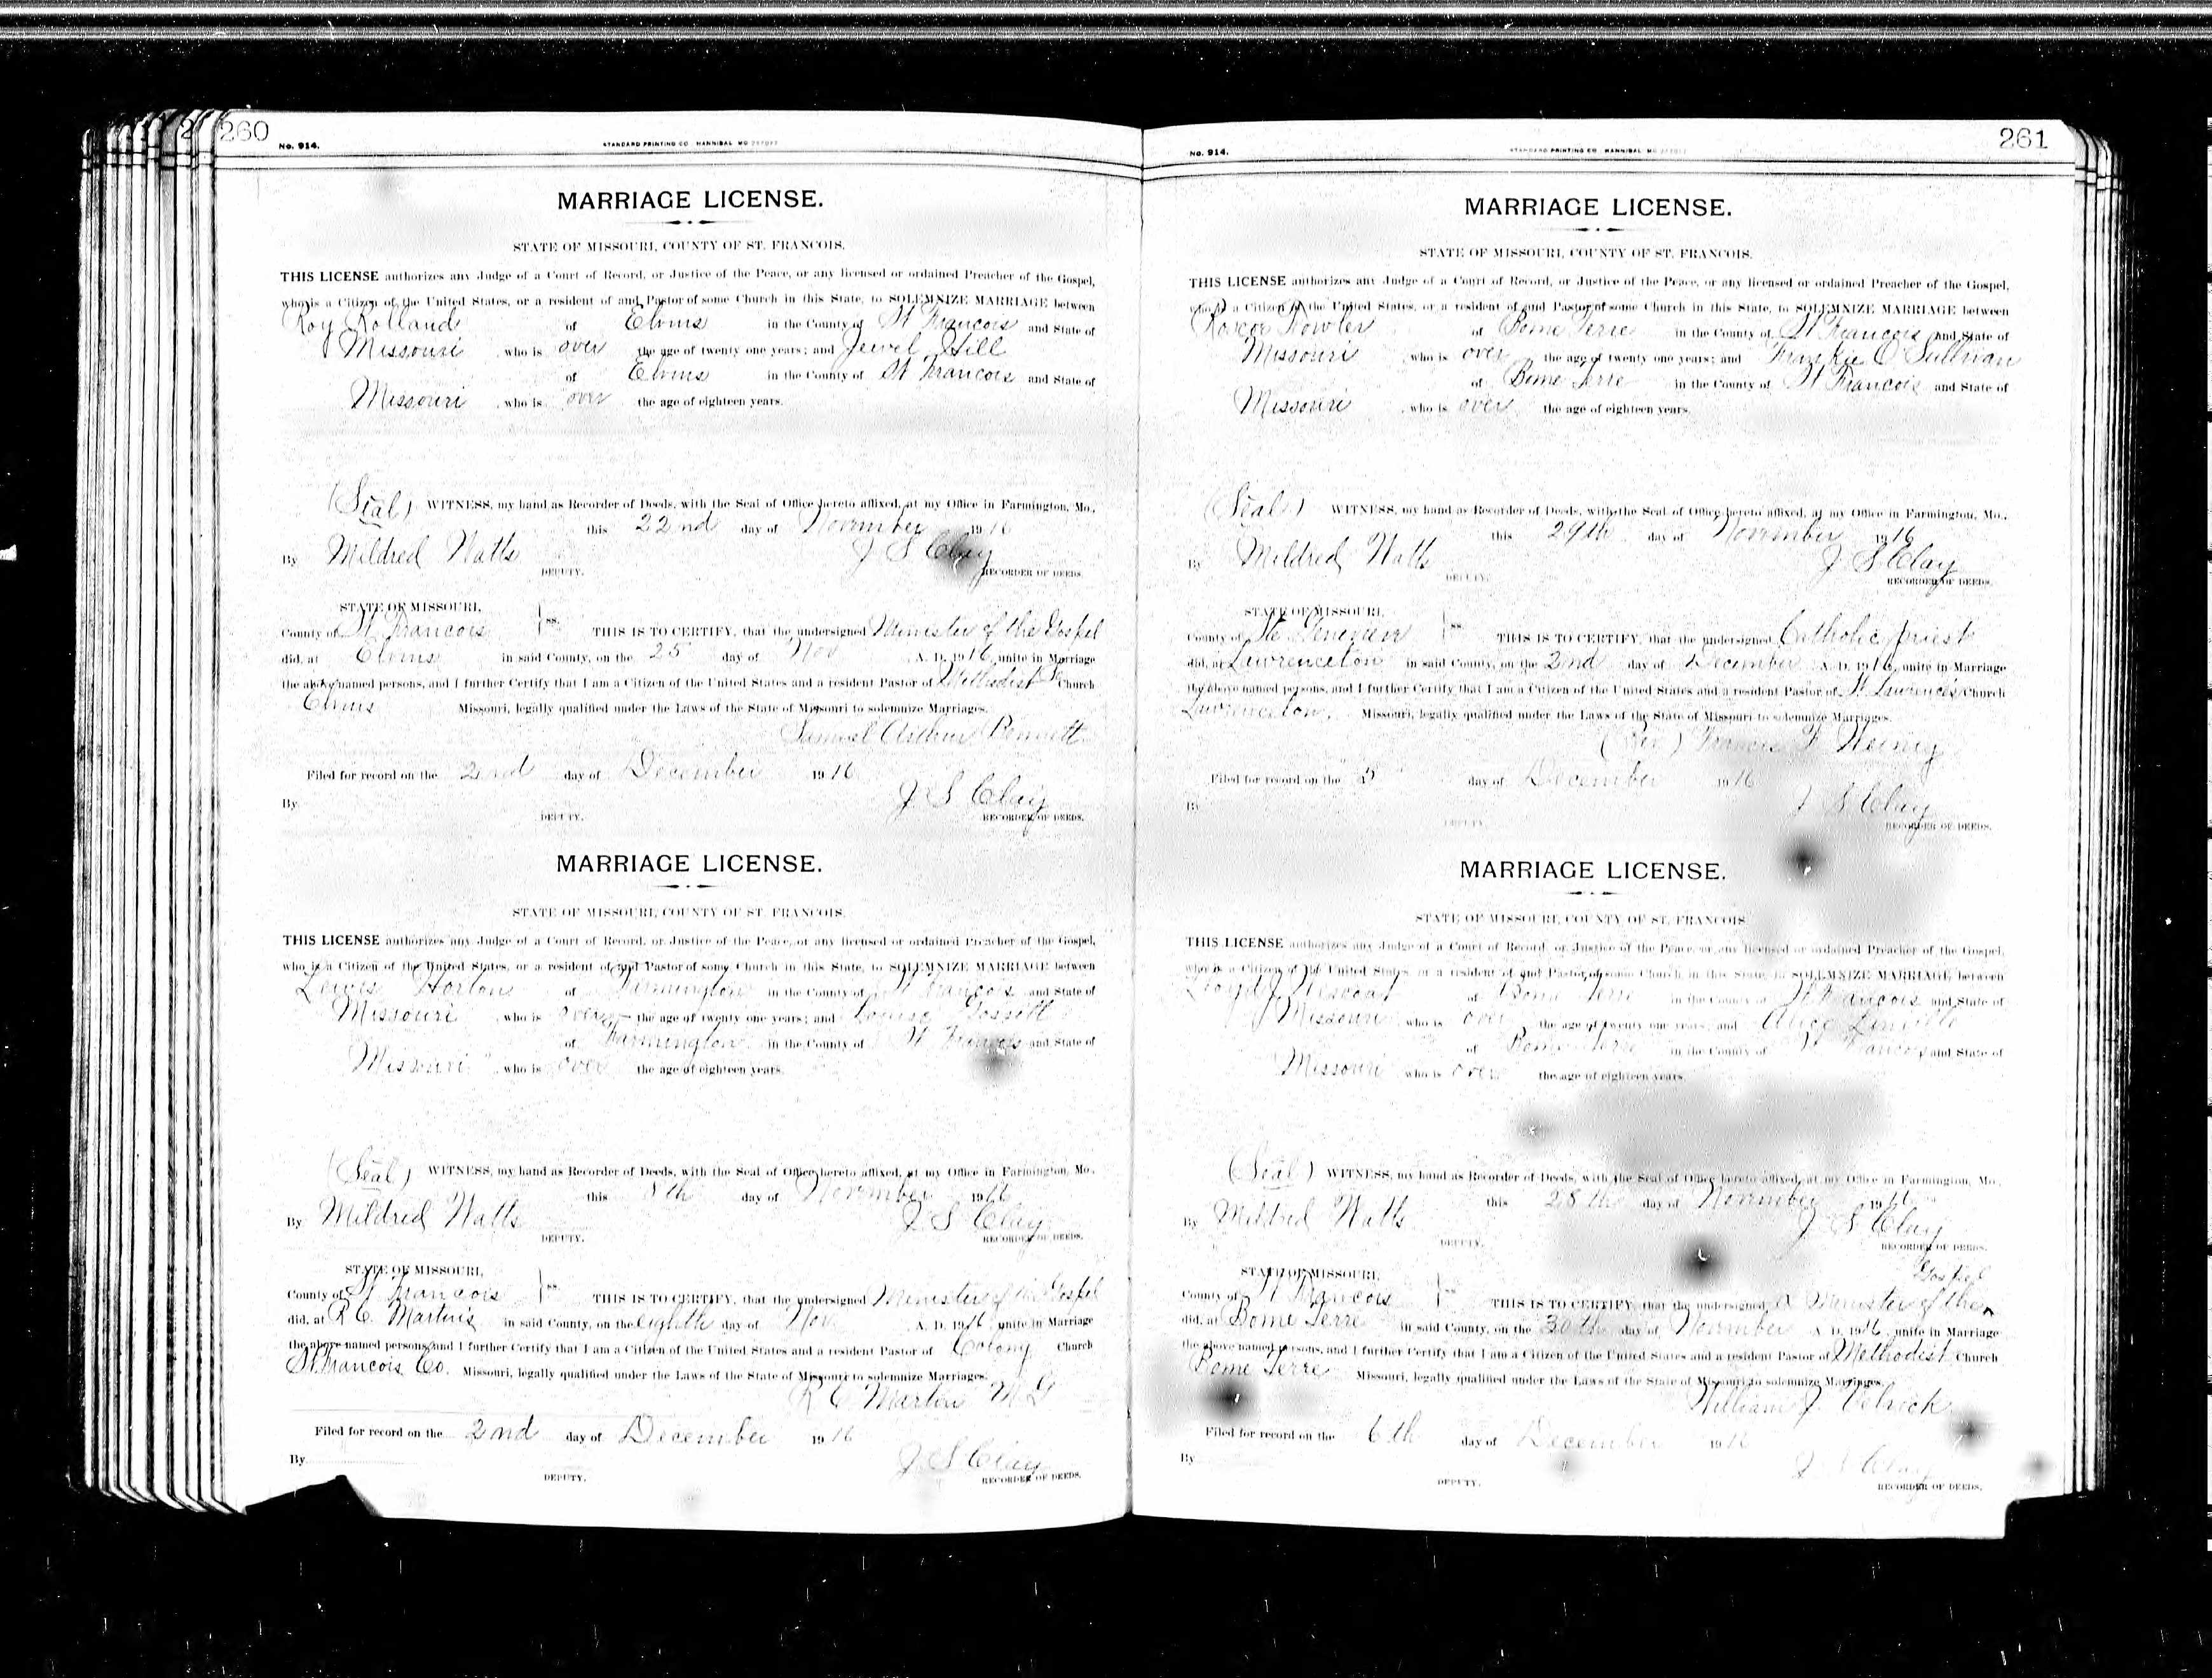 260
No. 914.
STANDARD PRINTING CO HANNIBAL MO
MARRIAGE LICENSE.
STATE OF MISSOURI, COUNTY OF ST. FRANCOIS.
THIS LICENSE authorizes any Judge of a Court of Record, or Justice of the Peace, or any licensed or ordained Preacher of the Gospel,
who is a Citizen of the United States, or a resident of and Pastor of some Church in this State, to SOLEMNIZE MARRIAGE between
Roy Rolland of Elvins in the County of St Francois and State of
Missouri who is over the age of twenty one years; and Jewel Hill
of Elvins in the County of St Francois and State of
Missouri who is over the age of eighteen years.
(Seal) WITNESS, my hand as Recorder of Deeds, with the Seal of Office hereto affixed, at my Office in Farmington, Mo.,
this 22nd day of November 1916
By Mildred Watts J S Clay
DEPUTY. RECORDER OF DEEDS.
STATE OF MISSOURI,
County of St Francois ss. THIS IS TO CERTIFY, that the undersigned Minister of the Gospel
did, at Elvins in said County, on the 25 day of Nov A. D. 1916, unite in Marriage
the above named persons, and I further Certify that I am a Citizen of the United States and a resident Pastor of Methodist So Church
Elvins Missouri, legally qualified under the Laws of the State of Missouri to solemnize Marriages.
Samuel Arthur Bennett
Filed for record on the 2nd day of December 1916
By J S Clay
DEPUTY. RECORDER OF DEEDS.
MARRIAGE LICENSE.
STATE OF MISSOURI, COUNTY OF ST. FRANCOIS.
THIS LICENSE authorizes any Judge of a Court of Record, or Justice of the Peace, or any licensed or ordained Preacher of the Gospel,
who is a Citizen of the United States, or a resident of and Pastor of some Church in this State, to SOLEMNIZE MARRIAGE between
Lewis Horton of Farmington in the County of St Francois and State of
Missouri who is over the age of twenty one years; and Louise Gossett
of Farmington in the County of St Francois and State of
Missouri who is over the age of eighteen years.
(Seal) WITNESS, my hand as Recorder of Deeds, with the Seal of Office hereto affixed, at my Office in Farmington, Mo.,
this 8th day of November 1916
By Mildred Watts J S Clay
DEPUTY. RECORDER OF DEEDS.
STATE OF MISSOURI,
County of St Francois ss. THIS IS TO CERTIFY, that the undersigned Minister of the Gospel
did, at R C Martin's in said County, on the eighth day of Nov A. D. 1916, unite in Marriage
the above named persons, and I further Certify that I am a Citizen of the United States and a resident Pastor of Colony Church
St Francois Co. Missouri, legally qualified under the Laws of the State of Missouri to solemnize Marriages.
R C Martin M G
Filed for record on the 2nd day of December 1916
By J S Clay
DEPUTY. RECORDER OF DEEDS.
261
No. 914.
STANDARD PRINTING CO HANNIBAL MO
MARRIAGE LICENSE.
STATE OF MISSOURI, COUNTY OF ST. FRANCOIS.
THIS LICENSE authorizes any Judge of a Court of Record, or Justice of the Peace, or any licensed or ordained Preacher of the Gospel,
who is a Citizen of the United States, or a resident of and Pastor of some Church in this State, to SOLEMNIZE MARRIAGE between
Roscoe Fowler of Bonne Terre in the County of St Francois and State of
Missouri who is over the age of twenty one years; and Frankie O'Sullivan
of Bonne Terre in the County of St Francois and State of
Missouri who is over the age of eighteen years.
(Seal) WITNESS, my hand as Recorder of Deeds, with the Seal of Office hereto affixed, at my Office in Farmington, Mo.,
this 29th day of November 1916
By Mildred Watts J S Clay
DEPUTY. RECORDER OF DEEDS.
STATE OF MISSOURI,
County of Ste Genevieve ss. THIS IS TO CERTIFY, that the undersigned Catholic priest
did, at Lawrenceton in said County, on the 2nd day of December A. D. 1916, unite in Marriage
the above named persons, and I further Certify that I am a Citizen of the United States and a resident Pastor of St Lawrence's Church
Lawrenceton, Missouri, legally qualified under the Laws of the State of Missouri to solemnize Marriages.
(Rev) Francis F
Filed for record on the 5 day of December 1916
By J S Clay
DEPUTY. RECORDER OF DEEDS.
MARRIAGE LICENSE.
STATE OF MISSOURI, COUNTY OF ST. FRANCOIS
THIS LICENSE authorizes any Judge of a Court of Record, or Justice of the Peace, or any licensed or ordained Preacher of the Gospel,
who is a Citizen of the United States, or a resident of and Pastor of some Church in this State, to SOLEMNIZE MARRIAGE between
Lloyd J Wescoat of Bonne Terre in the County of St Francois and State of
Missouri who is over the age of twenty one years; and Alice Linville
of Bonne Terre in the County of St Francois and State of
Missouri who is over the age of eighteen years.
(Seal) WITNESS, my hand as Recorder of Deeds, with the Seal of Office hereto affixed, at my Office in Farmington, Mo.,
this 28th day of November 1916
By Mildred Watts J S Clay
DEPUTY. RECORDER OF DEEDS.
STATE OF MISSOURI, Gospel
County of St Francois ss. THIS IS TO CERTIFY, that the undersigned, a Minister of the
did, at Bonne Terre in said County, on the 30th day of November A. D. 1916, unite in Marriage
the above named persons, and I further Certify that I am a Citizen of the United States and a resident Pastor of Methodist Church
Bonne Terre Missouri, legally qualified under the Laws of the State of Missouri to solemnize Marriages.
William J Velvick
Filed for record on the 6th day of December 1916
By J S Clay
DEPUTY. RECORDER OF DEEDS.